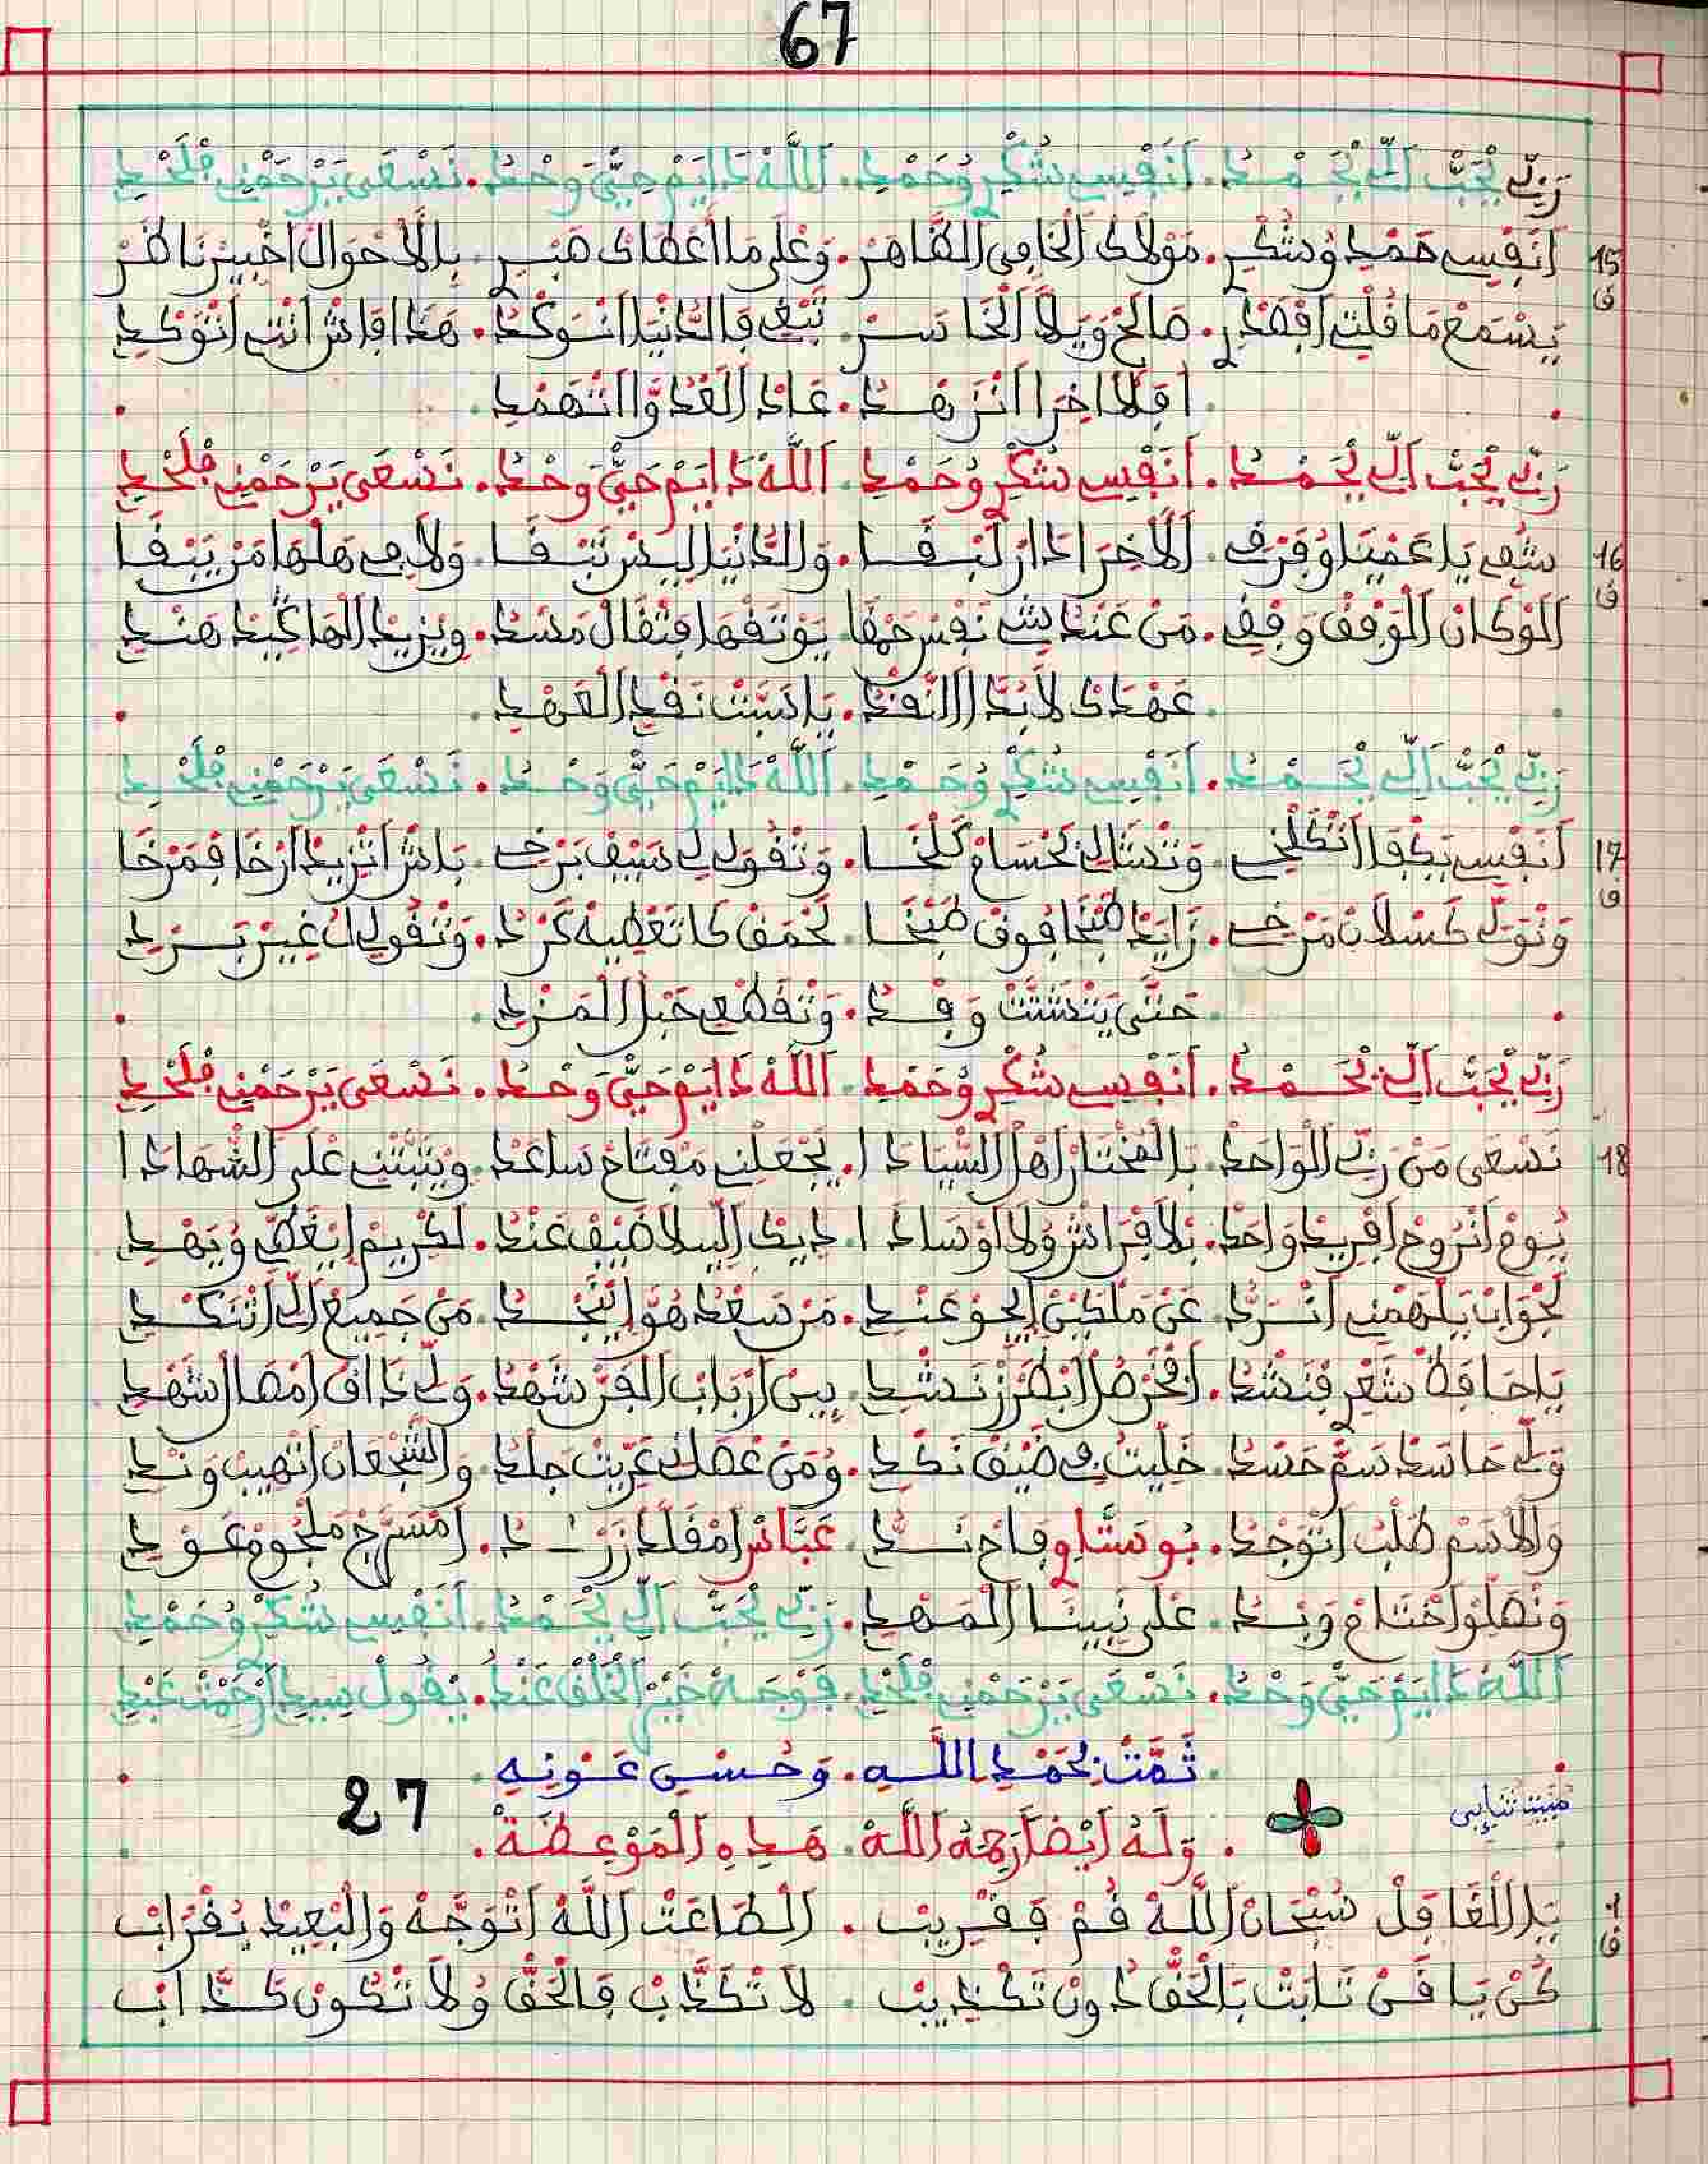 67
رَبِّي يْحَبّْ اَلِّي يْحَمْدُ . اَنَفْسِي شُكْرِ وُحَمْدِ . اَللَّهْ دَايَمْ حَيّْ وَحْدُ . نَسْعَى يَرْحَمْنِي فْلَحْدِ
15 اَنَفْسِي حَمْدِ وُشُكْرِ . مَوْلَاكْ الْحَامِي الظَّاهَرْ . وَعْلَى مَا اعْطَاكْ صَبْرِ . بِالَاحْوَالْ اخْبِيرْ نَاظَرْ
ف يَسْمَعْ مَا قُلْتِ اقْصَدْ . صَالَحْ وَيلَا الْخَاسَرْ . تَبْغِي فَالدَّنْيَا . هَذَا وَاشْ انْتِ
. افْلَاخِرَا . عَادْ الْغَدْوَا .
رَبِّي يْحَبّْ اَلِّي يْحَمْدُ . اَنَفْسِي شُكْرِ وُحَمْدِ . اَللَّهْ دَايَمْ حَيّْ وَحْدُ . نَسْعَى يَرْحَمْنِي فْلَحْدِ
16 شُفِي يَا عَمْيَا وُفَرْقِ . اَلَاخِرَا دَارْ لَبْقَا . وَالدَّنْيَا لِيسْ تَبْقَا . وَلَا فِي هَلْهَا مَنْ يَبْقَا
ف اَلَوْ كَانْ الْوَقْفْ وَقْفِ . مَنْ عَنْدُ شِي نَفْسْ حَمْقَا . يَوْثَقْهَا مِثْقَالْ مَسْدُ . وِيزِيدْ الْهَا هَنْدِ
. عَهْدَكْ لَابُدَّ . يَا دَبْتْ نَقْدِ الْعَهْدِ .
رَبِّي يْحَبّْ اَلِّي يْحَمْدُ . اَنَفْسِي شُكْرِ وُحَمْدِ . اَللَّهْ دَايَمْ حَيّْ وَحْدُ . نَسْعَى يَرْحَمْنِي فْلَحْدِ
17 اَنَفْسِي يَكْفَا . وَتْقُولِ لِي سِيفْ بَرْخِ . بَاشْ اتْزِيدْ ارْخَا فَمَرْخَا
ف وَتْوَلِّي كَسْلَانْ مَرْخِ . زَايَدْ طَبْخَا فُوقْ طَبْخَا . لَحْمَقْ كَا تَعْطِيهْ كَرْدُ . وَتْقُولِ لُ غِيرْ سَرْدِ
. حَتَّى يَتْشَتَّتْ وَقْدُ . وَتْقَطْعِ حَبْلْ الْمَزْدِ .
رَبِّي يْحَبّْ اَلِّي يْحَمْدُ . اَنَفْسِي شُكْرِ وُحَمْدِ . اَللَّهْ دَايَمْ حَيّْ وَحْدُ . نَسْعَى يَرْحَمْنِي فْلَحْدِ
18 نَسْعَى مَنْ رَبِّي الْوَاحَدْ . بِالْمُخْتَارْ اهْلْ السِّيَادَا . يَجْعَلْنِي مَفْتَاحْ سَاعَدْ . وِيثَبَّتْنِي عْلَى الشَّهَادَا
يُومْ انْرُوحْ افْرِيدْ وَاحَدْ . بْلَا فْرَاشْ وُلَا اوْسَادَا . دِيكْ اللِّيلَا ضَيْفْ عَنْدُ . لَكْرِيمْ ايْعَطِي وُيَهْدِ
لَجْوَابْ يَلْهَمْنِي انْرَدُّ . عَنْ مَلْكِينْ الِجِوْ عَنْدِ . مَنْ سَعْدُ هُوَّ ايْنَجْدُ . مَنْ جَمِيعْ الِّي اتْنَكْدِ
يَا حَافَظْ شَعْرِ فَنْشْدُ . . بِينْ ارْبَابْ الْفَنّْ شَهْدُ . وَلِّي ذَاقْ امْصَالْ شَهْدِ
وَلِّي حَاسَدْ سَمّْ حَسْدُ . خَلِّيتُ فِي ضَيْقْ نَكْدِ . وُمَنْ عْصَانِي عَرِّيتْ جَلْدُ . وَالشَّجْعَانْ اتْهِيبْ وَنْدِ
وَالَاسَمْ طَلْبُ اتْوَجْدُ . بُوسْتَّا وِفَاحْ نَدُّ . عَبَّاسْ امْقَلَّدْ زَرْدُ . امْسَرَّجْ مَلْجُومْ عَوْدِ
وَنْصَلِّوْ اخْتَامْ وَبْدُ . عْلَى نَبِينَا الْمَهْدِ . رَبِّي يْحَبّْ اَلِّي يْحَمْدُ . اَنَفْسِي شُكْرِ وُحَمْدِ
اَللَّهْ دَايَمْ حَيّْ وَحْدُ . نَسْعَى يَرْحَمْنِي فْلَحْدِ . فَوْجَهْ خَيْرْ الْخَلْقْ عَنْدُ . يْقُولْ سِيدِ ارْحَمْتْ عَبْدِ
. ثَمَّتْ بِحَمْدِ اللَّهِ . وَحُسْنِ عَوْنِهِ .
مبيت ثنايي
27
. وَلَهُ اَيْضًا رَحِمَهُ اللَّهْ . هَذِهِ الْمَوْعِظَةْ .
1 يَا الْغَافَلْ سُبْحَانْ اللَّهْ قُمْ فَقْرِيبْ . الْطَاعَتْ اللَّهْ اتْوَجَّهْ وَالْبَعِيدْ يُقْرَابْ
ف كُنْ يَا فَنْ ثَابَتْ بَالْحَقّْ دُونْ تَكْذِيبْ . لَا تْكَذَّبْ فَالْحَقّْ وُلَا تْكُونْ كَذَّابْ